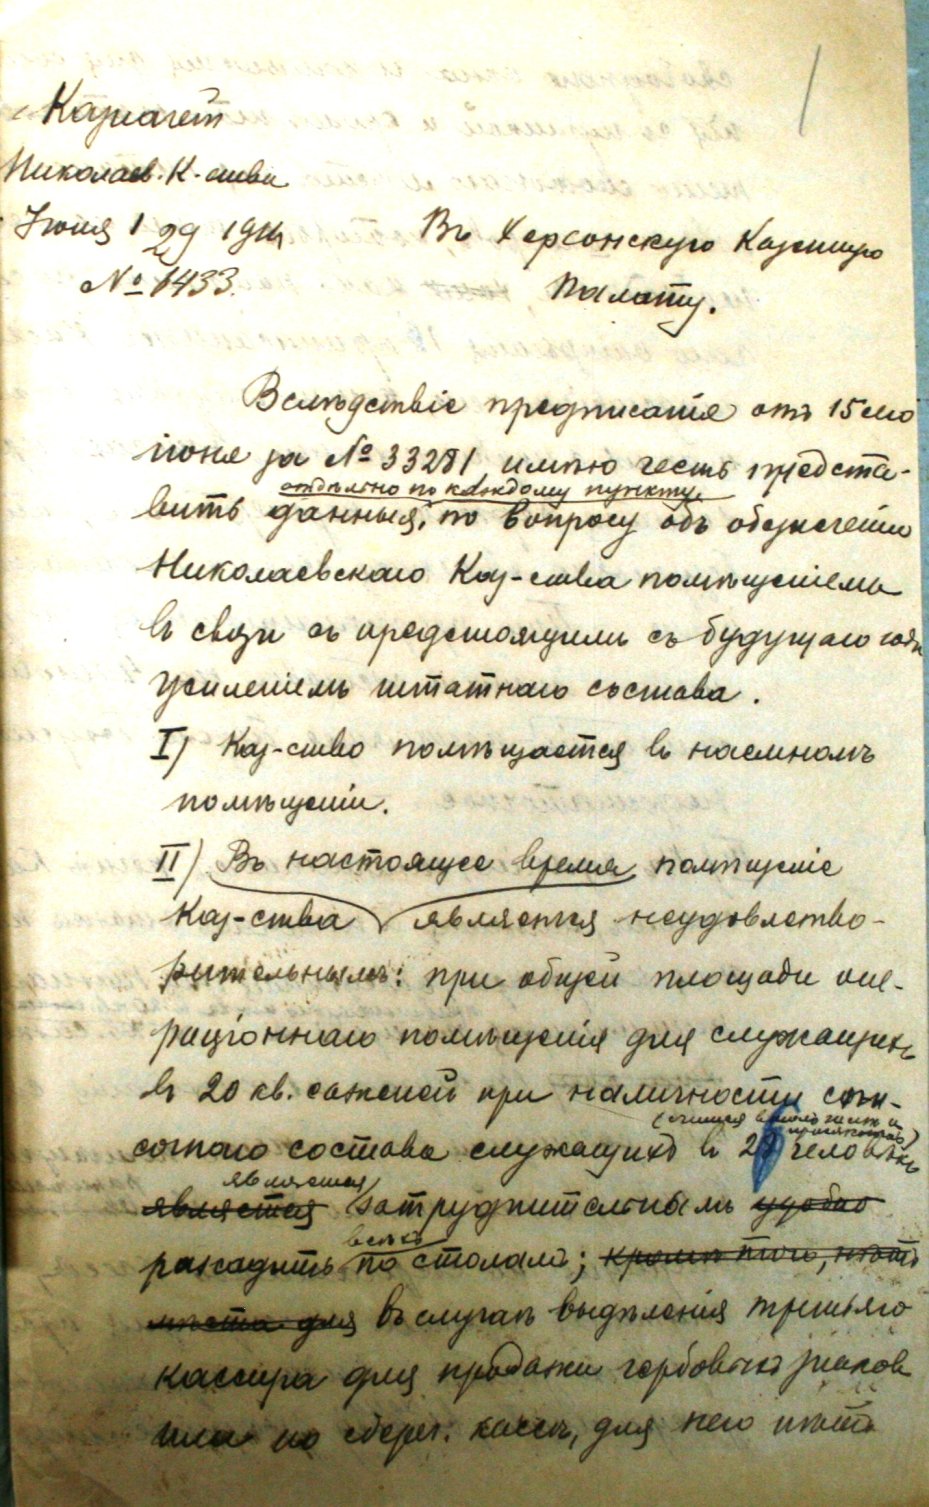 1
Казначей
Николаев. К-ства
Іюня 29 1911
№ 6433.
Въ Херсонскую Казенную
Палату.
Вслѣдствіе предписанія отъ 15 сего
іюня за № 33281 имѣю честь предста-
отдѣльно по каждому пункту
вить данныя, по вопросу объ обезпеченіи
Николаевскаго Каз-ства помѣщеніемъ
въ связи съ предстоящимъ съ будущаго года
усиленіемъ штатнаго состава.
I) Каз-ство помѣщается въ наемномъ
помѣщеніи.
II) Въ настоящее время помѣщеніе
Каз-ства является неудовлетво-
рительнымъ: при общей площади опе-
раціоннаго помѣщенія для служащихъ
въ 20 кв. саженей при наличности спи-
сочнаго состава служащихъ въ человѣкъ
является
является затруднительнымъ удобно
всѣхъ
разсадить по столамъ; кромѣ того, нѣтъ
мѣста для въ случаѣ выдѣленія третьяго
кассира для продажи гербовыхъ знаковъ
или по сберег. кассѣ, для него нѣтъ